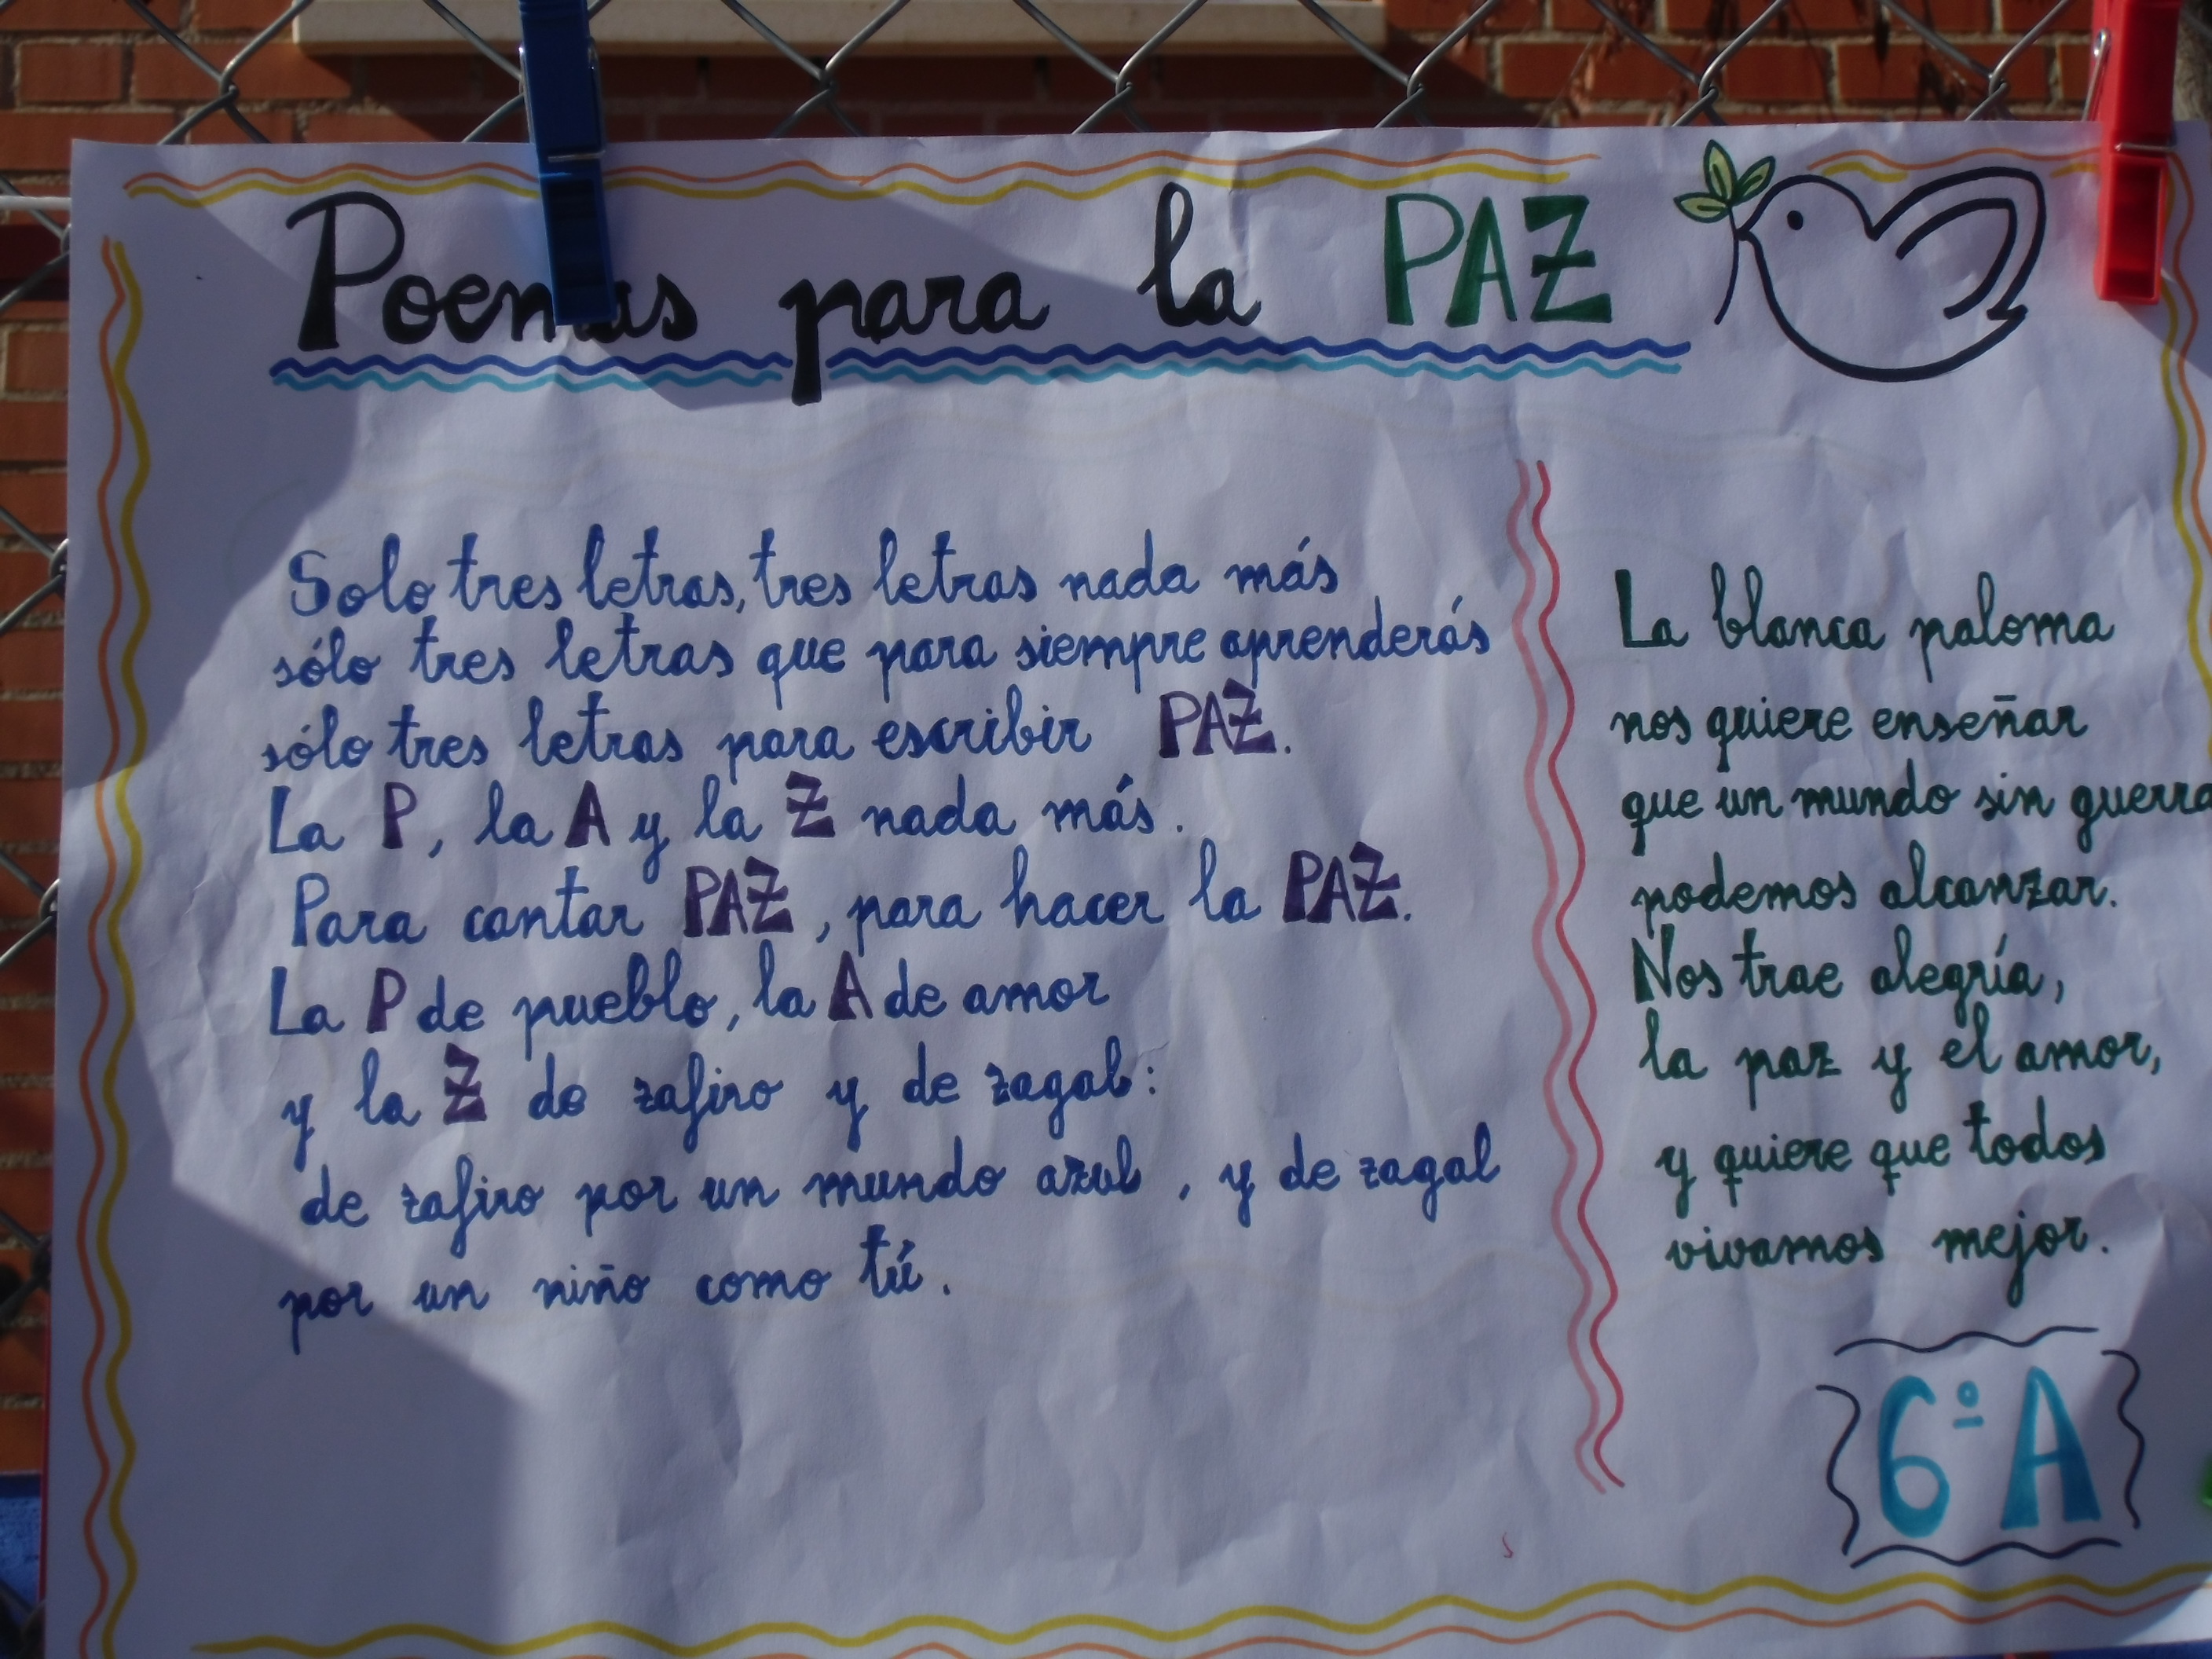 Poemas para la PAZ
Solo tres letras, tres letras nada más
sólo tres letras que para siempre aprenderás
sólo tres letras para escribir PAZ.
La P, la A y la Z nada más.
Para cantar PAZ, para hacer la PAZ.
La P de pueblo, la A de amor
y la Z de zafiro y de zagal:
de zafiro por un mundo azul, y de zagal
por un niño como tú.
La blanca paloma
nos quiere enseñar
que un mundo sin guerra
podemos alcanzar.
Nos trae alegría,
la paz y el amor,
y quiere que todos
vivamos mejor.
6º A